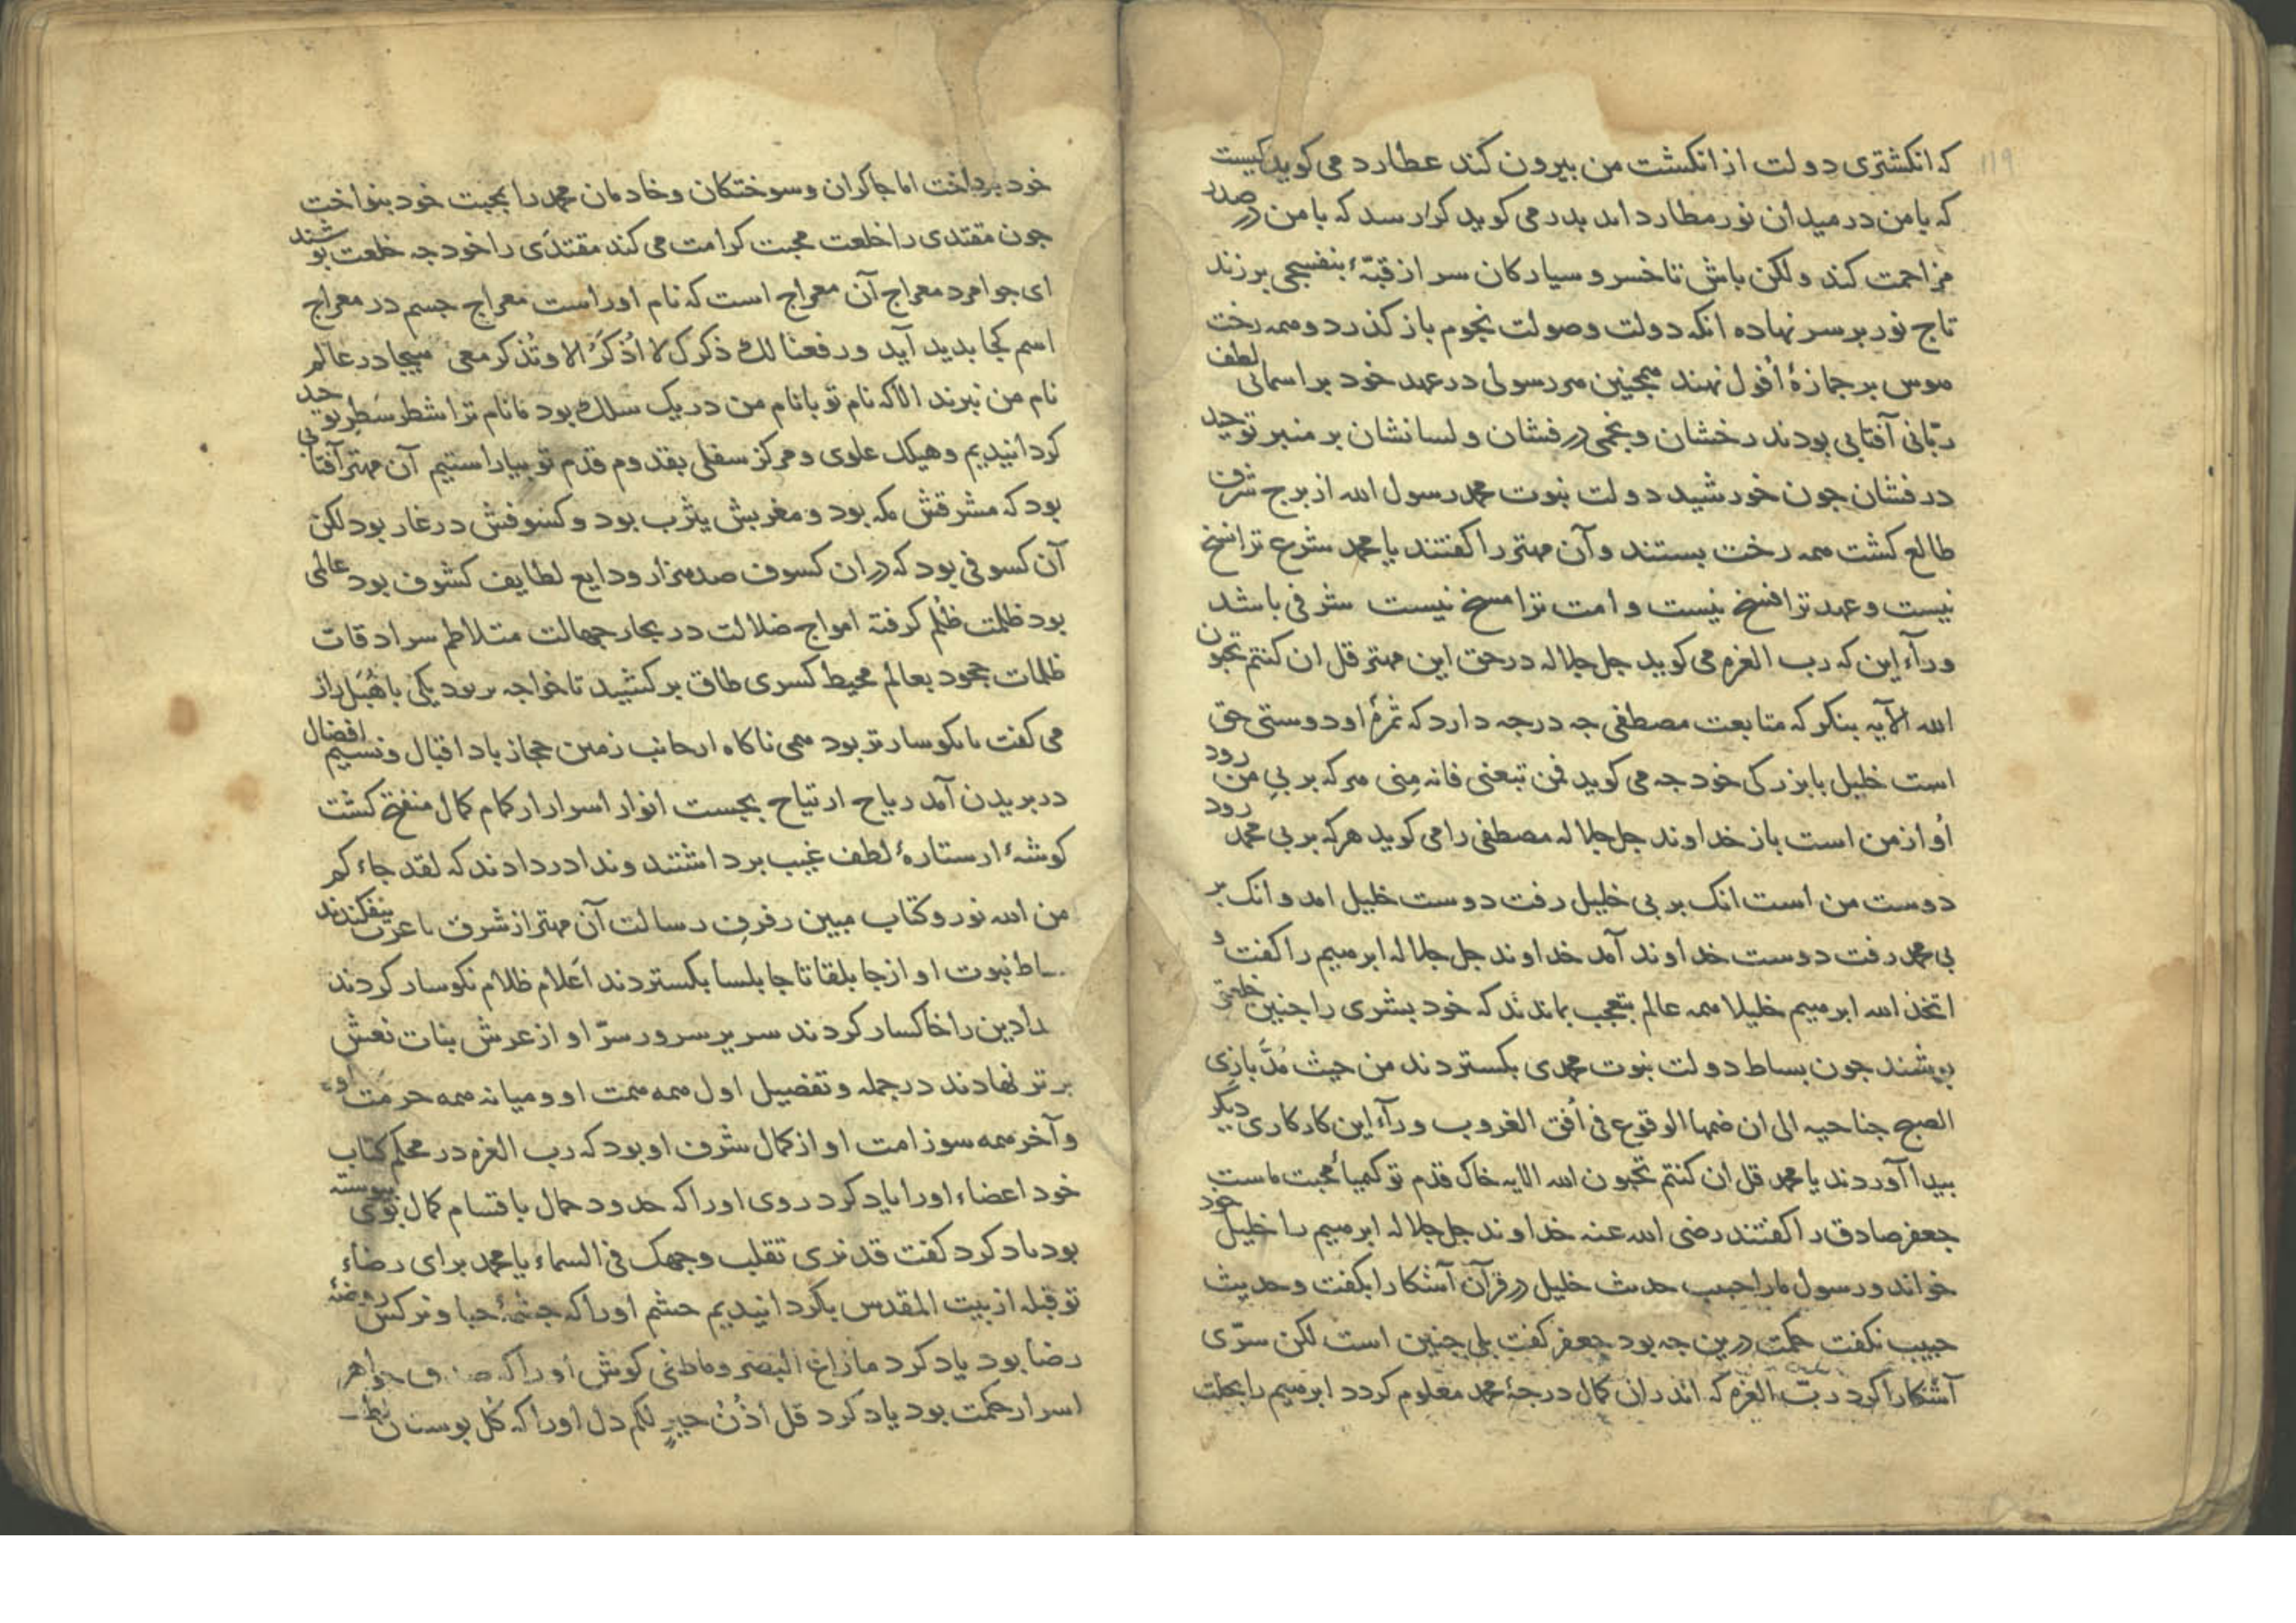 ۱۱۹
که انکشتری دولت از انکشت من بیرون کند عطارد می کوید کیست
که با من در میدان نور مطارد اند بدر می کوید کرا رسد که با من در صدر
مزاحمت کند ولکن باش تا خسرو سیارکان سر از قبّهٔ بنفسجی برزند
تاج نور بر سر نهاده انکه دولت وصولت نجوم باز کذرد و همه رخت
هوس بر جمازهٔ اُفول نهند همچنین هر رسولی در عهد خود بر اسمانی لطف
ربّانی آفتابی بودند رخشان و نجمی درفشان ولسانشان بر منبر توحید
درفشان جون خورشید دولت نبوت محمد رسول الله از برج شرف
طالع کشت همه رخت بستند و آن مهتر را کفتند یا محمد شرع ترا نسخ
نیست و عهد ترا فسخ نیست و امت ترا مسخ نیست شرفی باشد
ورآء این که رب العزه می کوید جل جلاله در حق این مهتر قل ان کنتم تحبون
الله الآیه بنکر که متابعت مصطفی جه درجه دارد که ثمرهٔ او دوستی حق
است خلیل با بزرکی خود جه می کوید فمن تبعنی فانه مِنی هر که بر بیِ من رود
اُو از من است باز خداوند جل جلاله مصطفی را می کوید هرکه بر بی محمد رود
دوست من است انک بر بی خلیل رفت دوست خلیل امد و انک بر
بی محمد رفت دوست خداوند آمد خداوند جل جلاله ابرهیم را کفت و
اتخذ الله ابرهیم خلیلا همه عالم بتعجب بماندند که خود بشری را جنین خلعتی
بوشند جون بساط دولت نبوت محمدی بکستردند من حیث مُدَّ بازی
الصبح جناحیه الی ان ضمها الوقوع فی اُفق الغروب ورآء این کار کاری دیکر
بیدا آوردند یا محمد قل ان کنتم تحبون الله الایه خاک قدم تو کمیاء محبت ماست
جعفر صادق را کفتند رضی الله عنه خداوند جل جلاله ابرهیم را خلیل خود
خواند و رسول ما را حبیب حدیث خلیل در قرآن آشکارا بکفت و حدیث
حبیب نکفت حکمت درین جه بود جعفر کفت بلی جنین است لکن سرّی
آشکارا کرد ربّ العزه که اندران کمال درجهٔ محمد معلوم کردد ابرهیم را بخلت
خود برداخت اما جاکران و سوختکان و خادمان محمد را بمحبت خود بنواخت
جون مقتدی را خلعت محبت کرامت می کند مقتدَی را خود جه خلعت بوشند
ای جوامرد معراج آن معراج است که نام اوراست معراج جسم در معراج
اسم کجا بدید آید ورفعنا لک ذکرک لا اُذکَرُ الا وتُذکر معی هیجا در عالم
نام من نبرند الا که نام تو با نام من در یک سلک بود ما نام ترا شطر سَطر توحید
کردانیدیم و هیکل علوی و مرکز سفلی بقدوم قدم تو بیاراستیم آن مهتر آفتابی
بود که مشرقش مکه بود و مغربش یثرب بود و کسوفش در غار بود لکن
آن کسوفی بود که در ان کسوف صد هزار ودایع لطایف کشوف بود عالمی
بود ظلمت ظُلم کرفته امواج ضلالت در بحار جهالت متلاطم سرادقات
ظلمات جحود بعالم محیط کسری طاق برکشید تا خواجه بر بود یکی با هُبَل راز
می کفت تا نکوسارتر بود همی ناکاه از جانب زمین حجاز باد اقبال و نسیم افضال
در بریدن آمد ریاح ارتیاح بجست انوار اسرار از کام کمال منفتح کشت
کوشهٔ از ستارهٔ لطف غیب برداشتند و ندا در دادند که لقد جاءکم
من الله نور وکتاب مبین رفرفِ رسالت آن مهتر از شرق تا غرب بیفکندند
بساط نبوت او از جابلقا تا جابلسا بکستردند اَعلام ظلام نکوسار کردند
را دین را خاکسار کردند سریر سرور سرّ او از عرش بنات نعش
برتر نهادند در جمله و تفضیل اول همه همت او و میانه همه حرمت او
و آخر همه سوز امت او از کمال شرف او بود که رب العزه در محکم کتاب
خود اعضاء او را یاد کرد روی او را که حدود جمال باقسام کمال بوی بیوسته
بود یاد کرد کفت قد نری تقلب وجهک فی السماء یا محمد برای رضاء
تو قبله از بیت المقدس بکردانیدیم جشم او را که جشمهٔ حیا و نرکس روضهٔ
رضا بود یاد کرد ما زاغ البصر وما طغی کوش او را که جواهر
اسرار حکمت بود یاد کرد قل اُذُنُ خیرٍ لکم دل او را که کُل بوستان